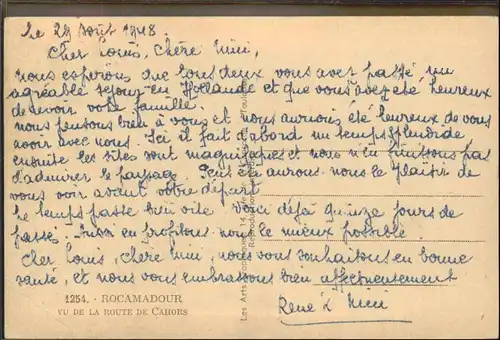 Le 29 Août 1948.
Cher Louis, Chère Mimi,
nous espérons que tous deux vous avez passé un
agréable séjour en Hollande et que vous avez été heureux
de revoir votre famille.
nous pensons bien à vous et nous aurions été heureux de vous
avoir avec nous. Ici il fait d'abord un temps splendide
ensuite les sites sont magnifiques et nous n'en finissons pas
d'admirer le paysage. Peut être aurons nous le plaisir de
vous voir avant votre départ
Le temps passe bien vite voici déjà quinze jours de
passés. Aussi en profitons nous le mieux possible
Cher Louis, chère Mimi, nous vous souhaitons en bonne
santé, et nous vous embrassons bien affectueusement
René & Mimi
1254. - ROCAMADOUR
VU DE LA ROUTE DE CAHORS
Les Arts